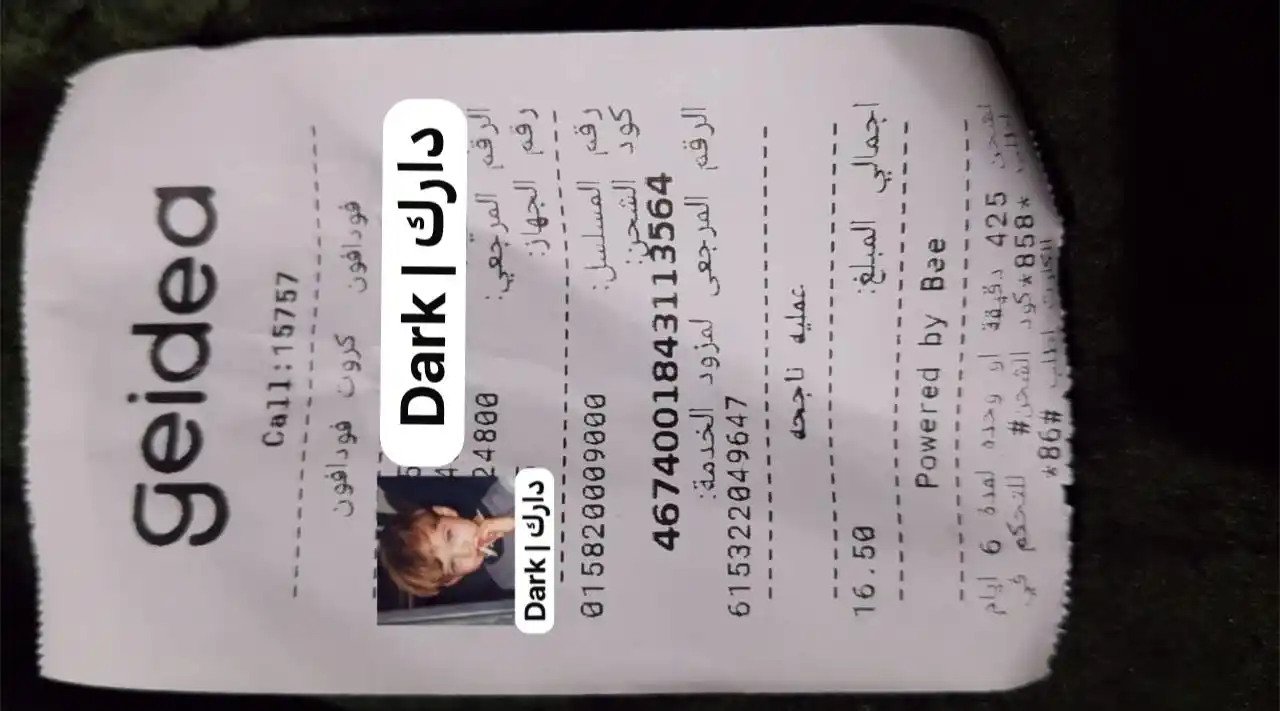 geidea
Call:15757
فودافون كروت فودافون
Dark | دارك
الرقم المرجعي:
24800
رقم الجهاز:
Dark | دارك
رقم المسلسل:
0158200009000
كود الشحن:
4674001843113564
الرقم المرجعى لمزود الخدمة:
615322049647
عمليه ناجحه
اجمالي المبلغ:
16.50
Powered by Bee
425 دقيقة او وحده لمدة 6 ايام
*858*كود الشحن# للتحكم في
اطلب
*86#